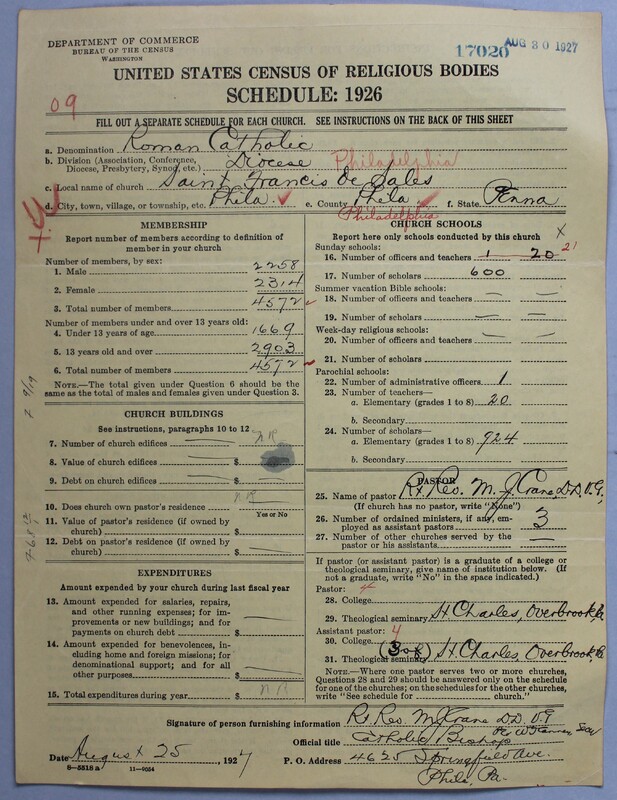 DEPARTMENT OF COMMERCE
BUREAU OF THE CENSUS
WASHINGTON
17020 AUG 30 1927
UNITED STATES CENSUS OF RELIGIOUS BODIES
SCHEDULE: 1926
09
FILL OUT A SEPARATE SCHEDULE FOR EACH CHURCH. SEE INSTRUCTIONS ON THE BACK OF THIS SHEET
a. Denomination Roman Catholic
b. Division (Association, Conference, Diocese, Presbytery, Synod, etc.) Diocese Philadelphia
c. Local name of church Saint Francis de Sales
d. City, town, village, or township, etc. Phila. e. County Phila f. State Penna
Philadelphia
MEMBERSHIP
Report number of members according to definition of
member in your church
Number of members, by sex:
1. Male 2258
2. Female 2314
3. Total number of members 4572
Number of members under and over 13 years old:
4. Under 13 years of age 1669
5. 13 years old and over 2903
6. Total number of members 4572
NOTE.—The total given under Question 6 should be
the same as the total of males and females given under Question 3.
CHURCH BUILDINGS
See instructions, paragraphs 10 to 12
7. Number of church edifices NR
8. Value of church edifices $
9. Debt on church edifices $
10. Does church own pastor's residence NR
Yes or No
11. Value of pastor's residence (if owned by
church) $
12. Debt on pastor's residence (if owned by
church) $
EXPENDITURES
Amount expended by your church during last fiscal year
13. Amount expended for salaries, repairs,
and other running expenses; for im-
provements or new buildings; and for
payments on church debt $
14. Amount expended for benevolences, in-
cluding home and foreign missions; for
denominational support; and for all
other purposes $
15. Total expenditures during year $
CHURCH SCHOOLS
Report here only schools conducted by this church X
Sunday schools:
16. Number of officers and teachers 1 20 21
17. Number of scholars 600
Summer vacation Bible schools:
18. Number of officers and teachers
19. Number of scholars
Week-day religious schools:
20. Number of officers and teachers
21. Number of scholars
Parochial schools:
22. Number of administrative officers 1
23. Number of teachers—
a. Elementary (grades 1 to 8) 20
b. Secondary
24. Number of scholars—
a. Elementary (grades 1 to 8) 924
b. Secondary
PASTOR
25. Name of pastor Rt. Rev. M. J. Crane, D.D. V.G.
(If church has no pastor, write "None")
26. Number of ordained ministers, if any, em-
ployed as assistant pastors 3
27. Number of other churches served by the
pastor or his assistants
If pastor (or assistant pastor) is a graduate of a college or
theological seminary, give name of institution below. (If
not a graduate, write "No" in the space indicated.)
Pastor: 4
28. College
29. Theological seminary St Charles, Overbrook, Pa
Assistant pastor: 4
30. College
31. Theological seminary St. Charles, Overbrook, Pa
NOTE.—Where one pastor serves two or more churches,
Questions 28 and 29 should be answered only on the schedule
for one of the churches; on the schedules for the other churches,
write "See schedule for church."
Signature of person furnishing information Rt Rev. M J Crane D.D. V.G
Official title Catholic Bishop
Date August 25, 1927 P. O. Address 4625 Springfield Ave.
8—5518 a 11—9054
Phila, Pa.